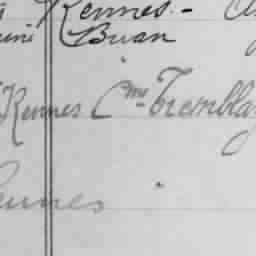 Rennes - 
Bruan
Rennes Cne Tremblay
Rennes